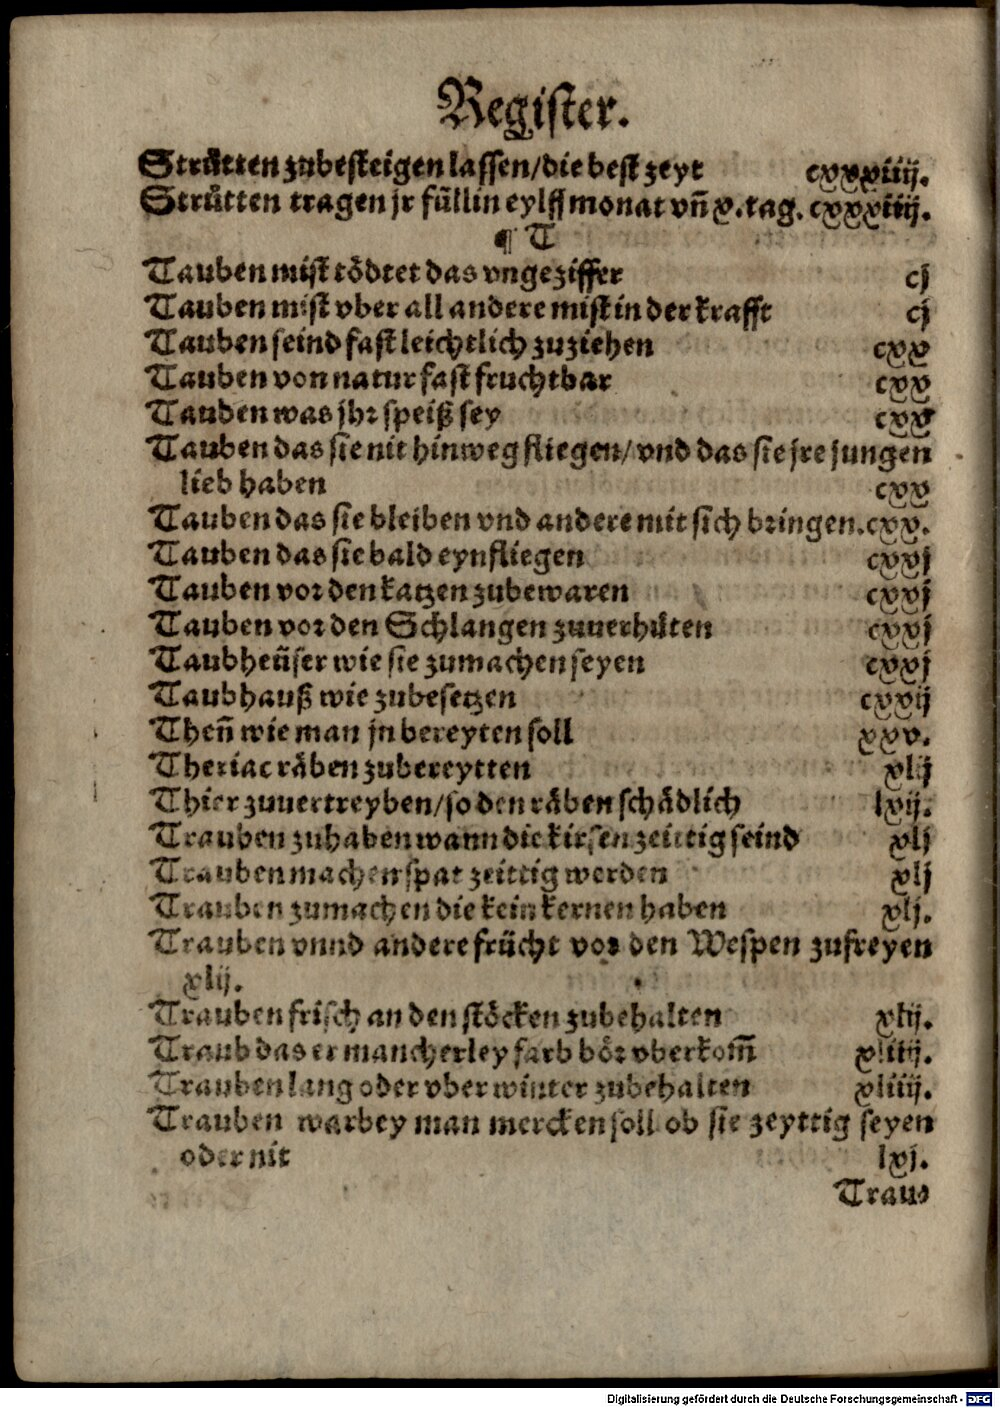 Register.
Struͤtten zubesteigen lassen/die best zeyt cxxxiiij.
Struͤtten tragen jr fuͤllin eylff monat vñ x.tag. cxxxiiij.
¶ T
Tauben mist toͤdtet das vngeziffer cj
Tauben mist vber all andere mist in der krafft cj
Tauben seind fast leichtlich zuziehen cxx
Tauben von natur fast fruchtbar cxx
Tauben was jhr speiß sey cxx
Tauben das sie nit hinweg fliegen/vnd das sie jre jungen
lieb haben cxx
Tauben das sie bleiben vnd andere mit sich bringen.cxx.
Tauben das sie bald eynfliegen cxxj
Tauben vor den katzen zubewaren cxxj
Tauben vor den Schlangen zuuerhuͤten cxxj
Taubheuͤser wie sie zumachen seyen cxxj
Taubhauß wie zubesetzen cxxij
Theñ wie man jn bereyten soll xxv.
Theriac raͤben zubereytten xlij
Thier zuuertreyben/so den raͤben schaͤdlich lxij.
Trauben zuhaben wann die kirsen zeittig seind xlj
Trauben machen spat zeittig werden xlj
Trauben zumachen die kein kernen haben xlj.
Trauben vnnd andere fruͤcht vor den Wespen zufreyen
xlij.
Trauben frisch an den stoͤcken zubehalten xlij.
Traub das er mancherley farb boͤr vberkom̃ xliiij.
Trauben lang oder vber winter zubehalten xliiij.
Trauben warbey man mercken soll ob sie zeyttig seyen
oder nit lxj.
Trau⸗
Digitalisierung gefördert durch die Deutsche Forschungsgemeinschaft - DFG